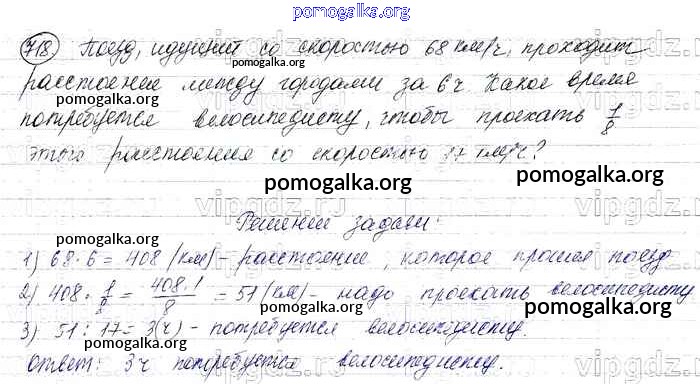 pomogalka.org
718. Поезд, идущий со скоростью 68 км/ч, проходит
расстояние между городами за 6ч. Какое время
pomogalka.org
потребуется велосипедисту, чтобы проехать 1/8
этого расстояния со скоростью 17 км/ч?
pomogalka.org pomogalka.org
vipgdz.ru vipgdz.ru
Решение задачи:
pomogalka.org
1) 68 · 6 = 408 (км) - расстояние, которое прошел поезд
2) 408 · 1/8 = 408·1/8 = 51 (км) - надо проехать велосипедисту
pomogalka.org
3) 51 : 17 = 3(ч) - потребуется велосипедисту.
pomogalka.org
Ответ: 3ч потребуется велосипедисту.